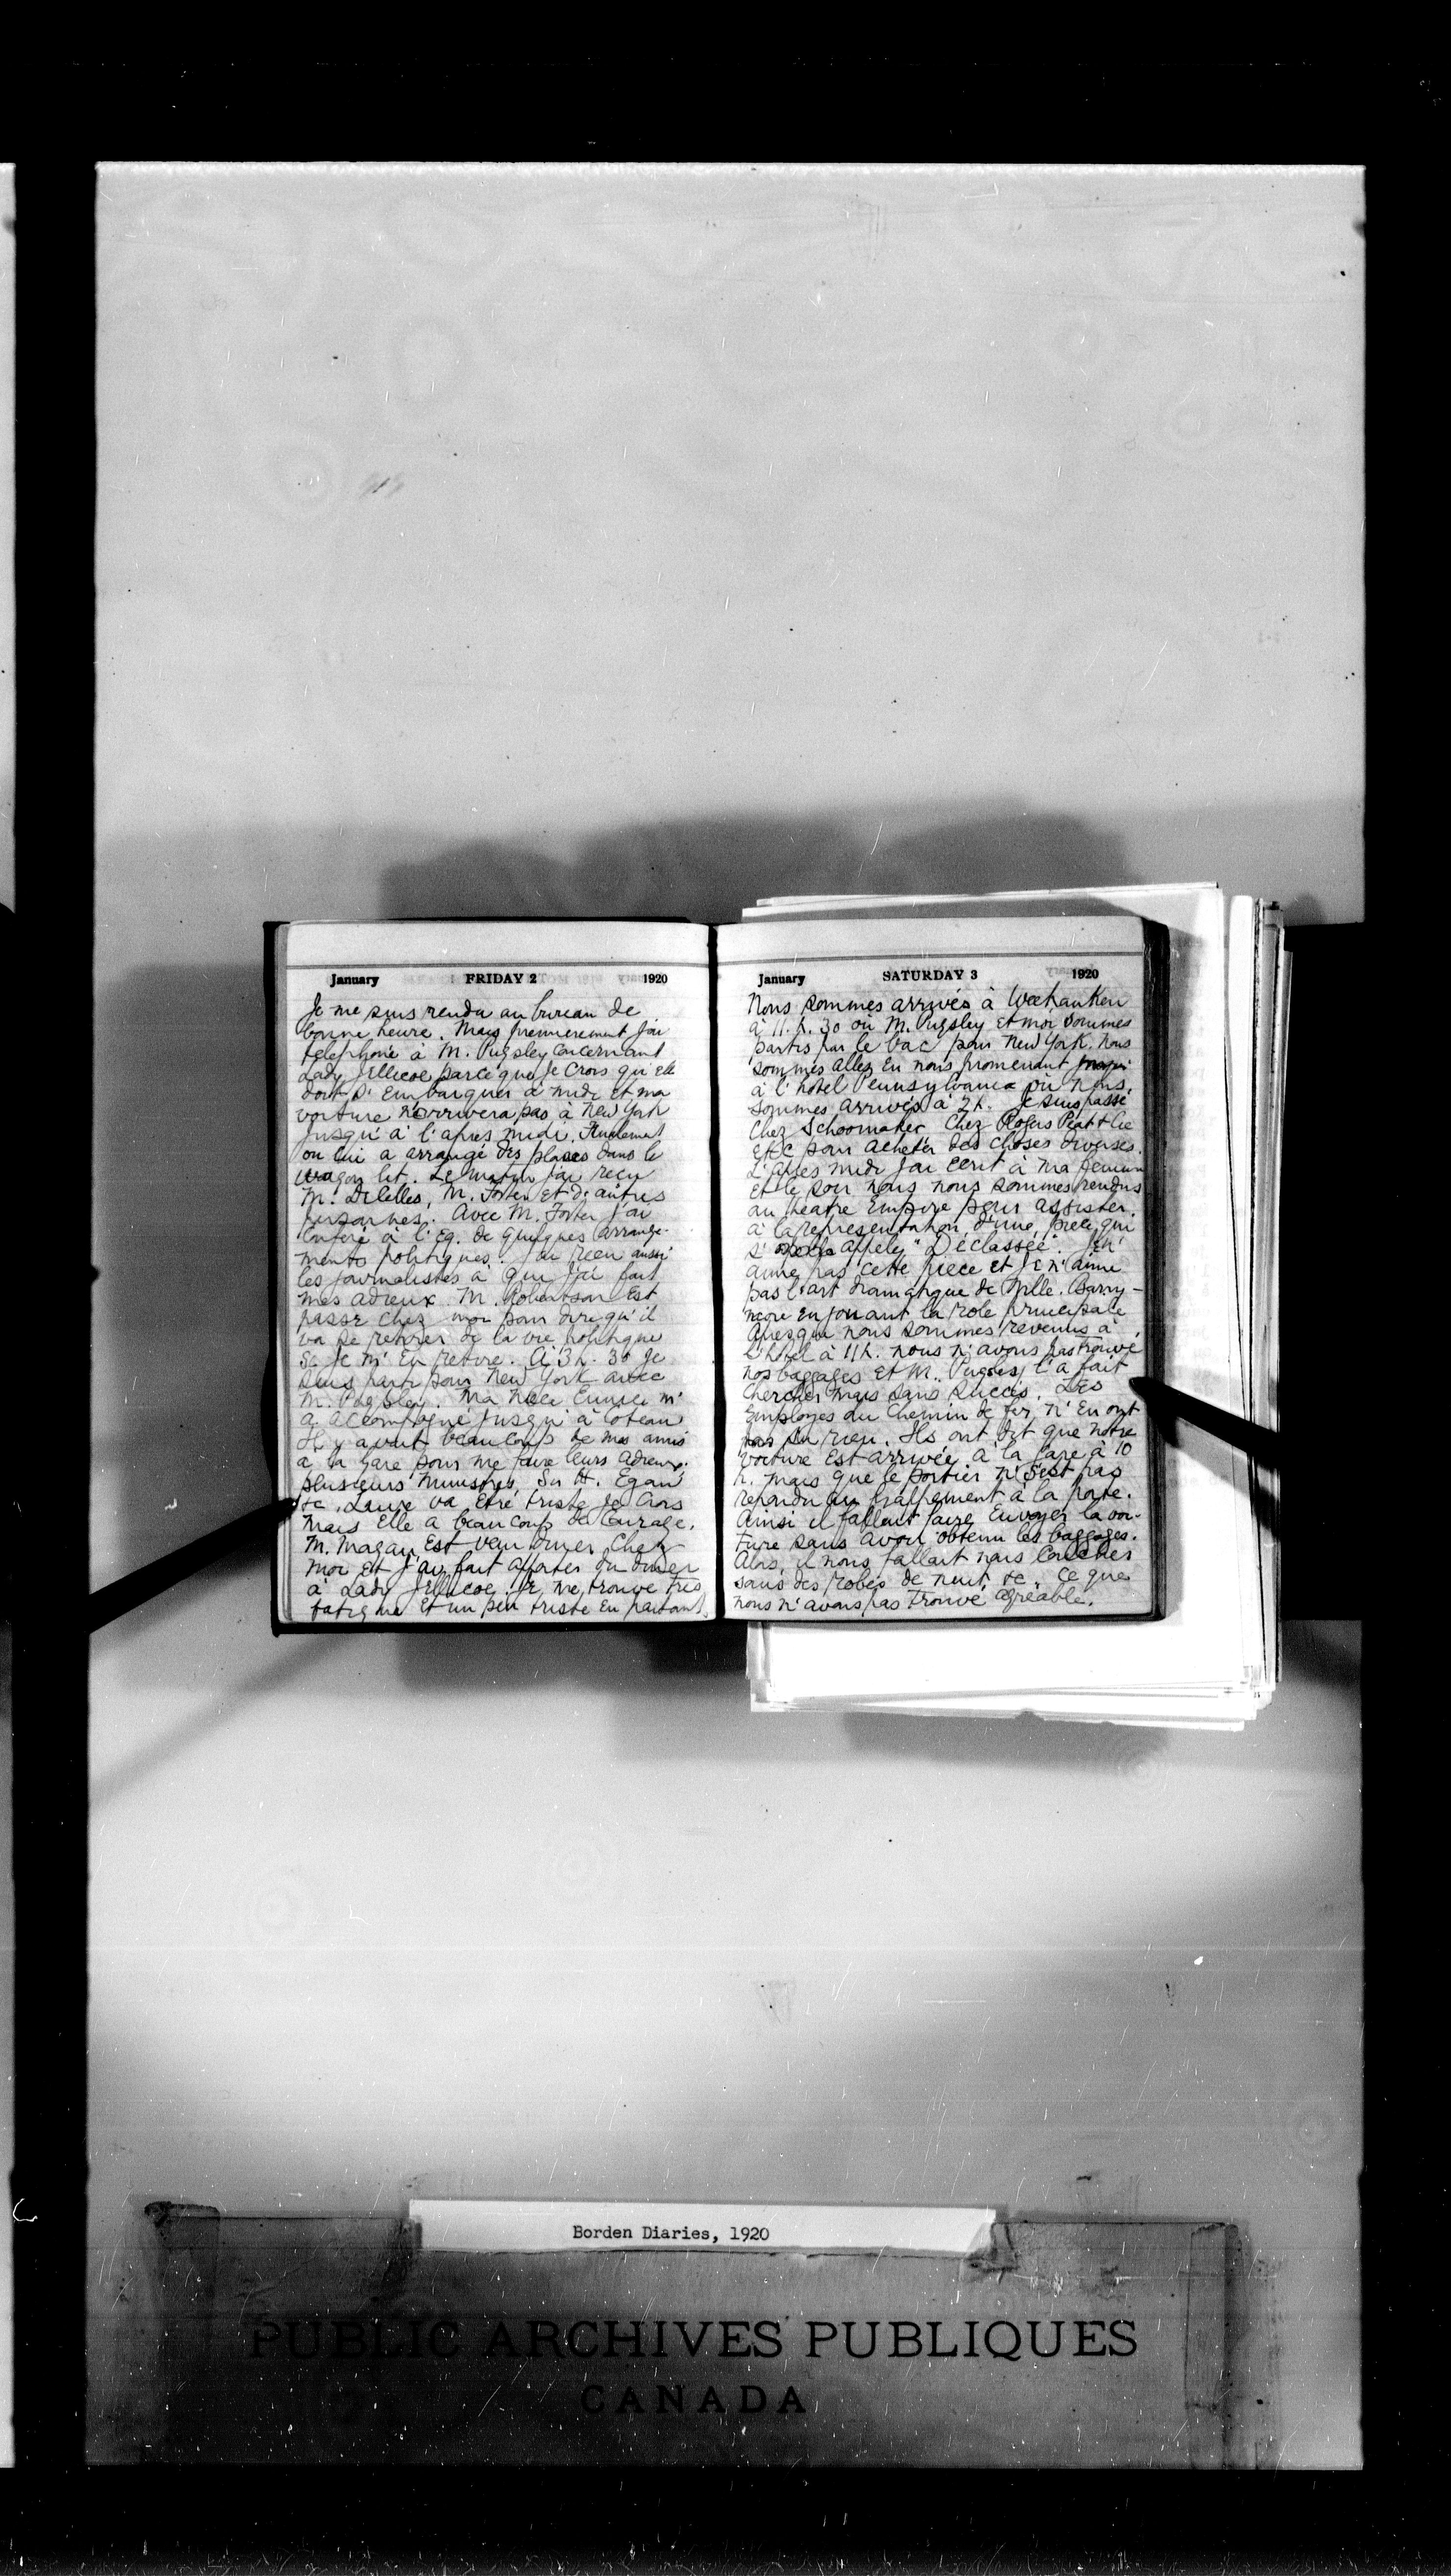 January FRIDAY 2 1920
Je me suis rendu au bureau de
bonne heure. Mais premierement j'ai
telephoné à M. Pugsley concernant
Lady Jellicoe parceque je crois qu'elle
doit s'embarquer à midi et ma
voiture n'arrivera pas à New York
jusqu'à l'apres midi. Finalement
on lui a arrangé des places dans le
wagon lit. Le matin j'ai reçu
M. DeCelles, M. Foster et d'autres
personnes. Avec M. Foster j'ai
conferé à l'eg. de quelques arrange-
ments politiques. J'ai reçu aussi
les journalistes à qui j'ai fait
mes adieux. M. Robertson est
passé chez moi pour dire qu'il
va se retirer de la vie politique
si je m'en retire. A 3 h. 30 je
suis parti pour New York avec
M. Pugsley. Ma niece Eunice m'
a accompagné jusqu'à Coteau
Il y avait beaucoup de mes amis
a la gare pour me faire leurs adieux.
plusieurs ministres, Sir H. Egan
&c. Laure va etre triste je crois
mais elle a beaucoup de courage.
M. Magan est venu diner chez
moi et j'ai fait apporter du diner
à Lady Jellicoe. Je me trouve très
fatigué et un peu triste en partant.
January SATURDAY 3 1920
Nous sommes arrivés à Weehauken
à 11. h. 30 où M. Pugsley et moi sommes
partis par le bac pour New York. Nous
sommes allez en nous promenant
à l'hotel Pennsylvania où nous
sommes arrivés à 2 h. Je suis passé
chez Schoomaker chez Rogers Peat & Cie
etc pour acheter des choses diverses.
L'apres midi j'ai ecrit à ma femme
et le soir nous nous sommes rendus
au theatre Empire pour assister
à la representation d'une piece qui
s' appele "Déclassée". Je n'
aime pas cette piece et je n'aime
pas l'art dramatique de Mlle. Barry-
more en jouant la role principale
Apresque nous sommes revenus à
l'hotel à 11 h. nous n'avons pas trouvé
nos baggages et M. Pugsley l'a fait
chercher mais sans succés. Les
employes du chemin de fer n'en ont
pas su rien. Ils ont dit que notre
voiture est arrivée à la gare à 10
h. mais que le portier n's'est pas
repondu au frappement à la porte.
Ainsi il fallait faire envoyer la voi-
ture sans avoir obtenu les baggages.
Alors, il nous fallait nous coucher
sans des robes de nuit &c. ce que
nous n'avons pas trouvé agréable.
Borden Diaries, 1920
PUBLIC ARCHIVES PUBLIQUES
CANADA